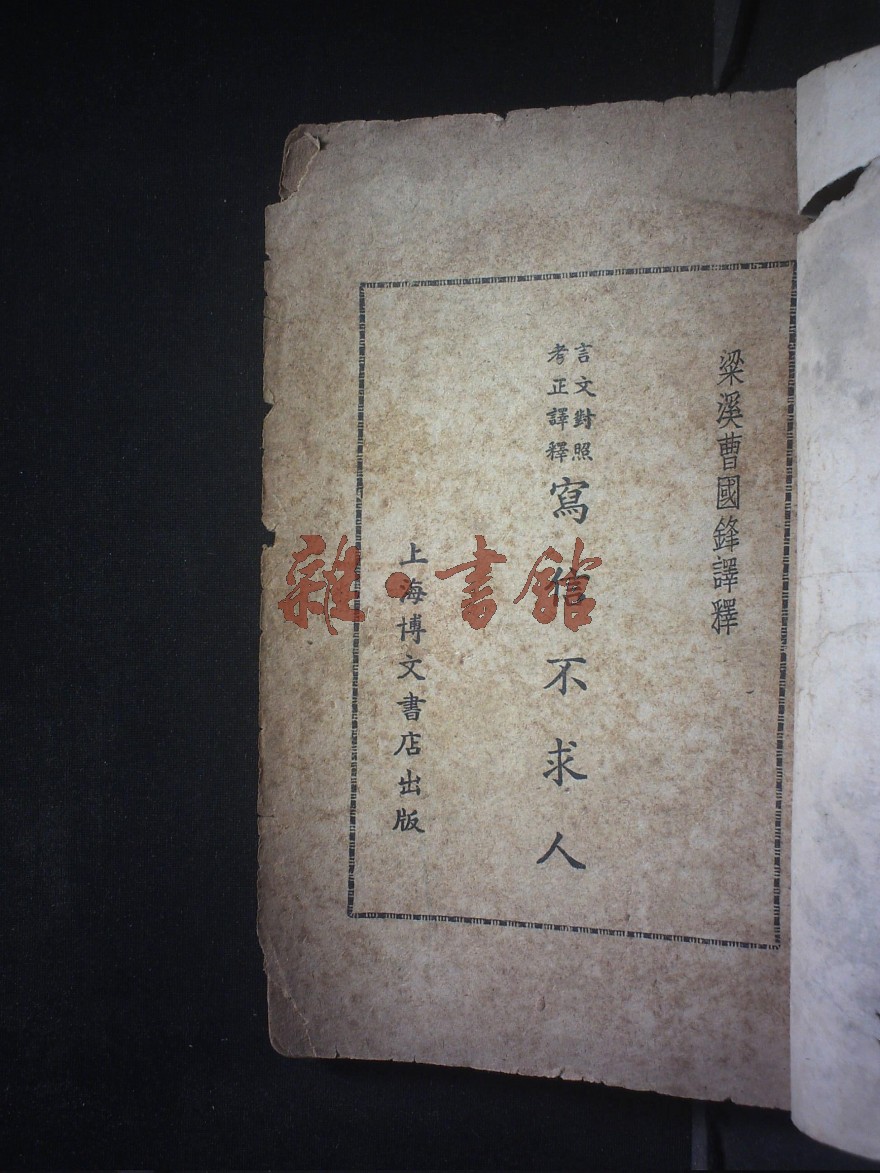 梁溪曹國鋒譯釋
言文對照
考正譯釋
寫信不求人
上海博文書店出版
雜·書館